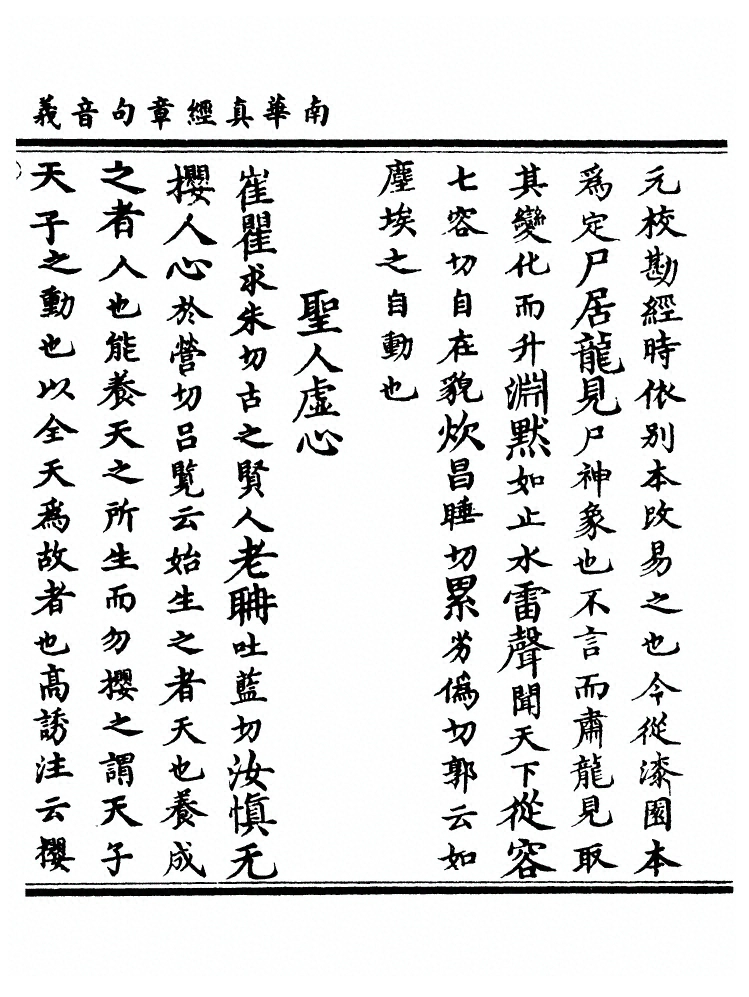 南華真經章句音義
元校勘經時依別本改易之也今從漆園本
爲定尸居龍見尸神象也不言而肅龍見取
其變化而升淵默如止水雷聲聞天下從容
七容切自在貌炊昌睡切累劣僞切郭云如
塵埃之自動也
聖人虛心
崔瞿求朱切古之賢人老聃吐藍切汝慎无
攖人心於營切呂覧云始生之者天也養成
之者人也能養天之所生而勿攖之謂天子
天子之動也以全天爲故者也高誘注云攖